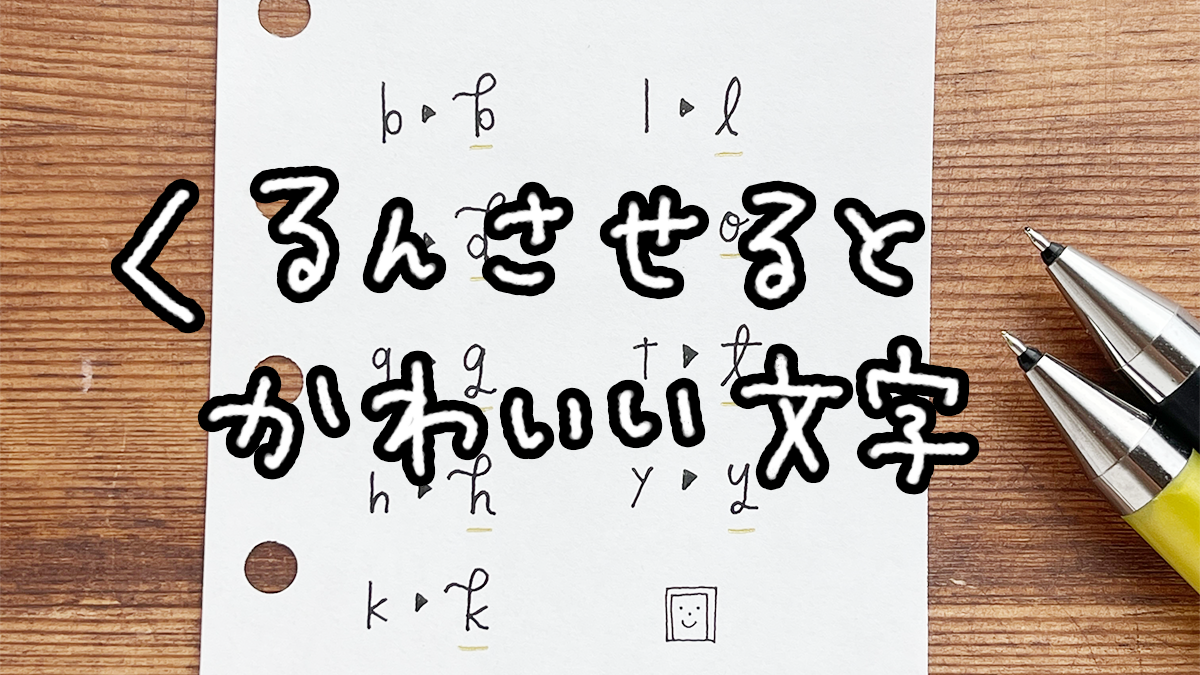 くるんさせると
かわいい文字
b ▶ b
l ▶ l
d
o
g g
t ▶ t
h ▶ h
y ▶ y
k ▶ k